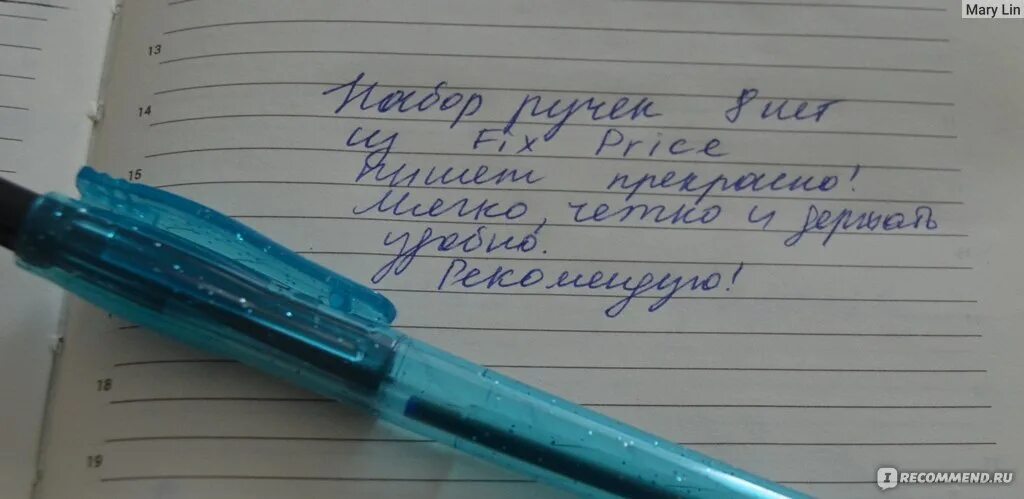 Mary Lin
13
14
15
18
19
Набор ручек 8 шт
из Fix Price
Пишет прекрасно!
Мягко, четко и держать
удобно.
Рекомендую!
IRECOMMEND.RU